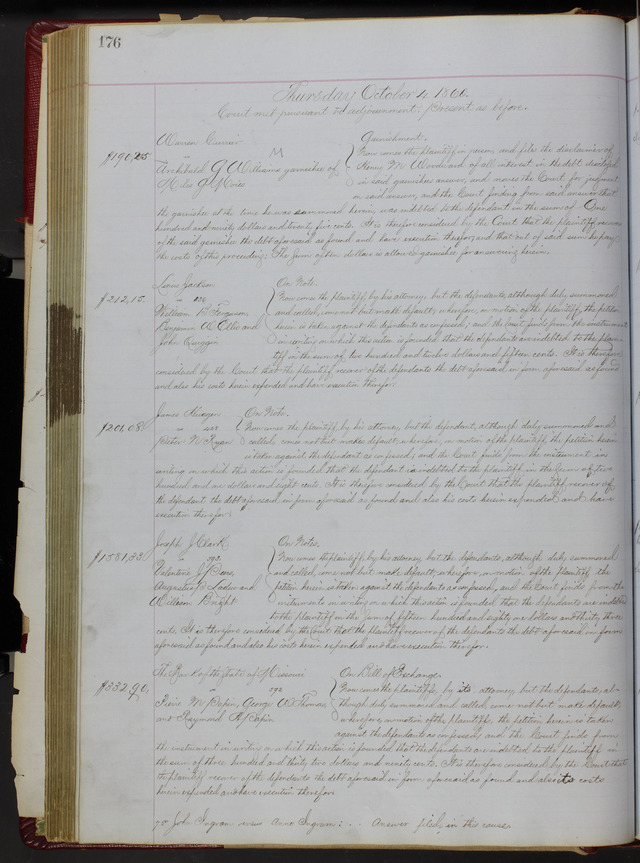 176
Thursday October 4, 1860.
Court met pursuant to adjournment: Present as before.
Warren Currier Garnishment.
$190,25 Now comes the plaintiff in person, and files the disclaimer of
Archibald Williams garnishee of Henry W. of all interest in the debt disclosed
in said garnishee answer, and moves the Court for judgment
on said answer, and the Court finding from said answer that
the garnishee at the time he was summoned herein, was indebted to the defendant in the sum of One
hundred and ninety dollars and twenty five cents. It is therefore considered by the Court that the plaintiff recover
of the said garnishee the debt aforesaid as found and have execution therefor; and that out of said sum he pay
the costs of this proceeding. The sum of ten dollars is allowed garnishee for answering herein.
Jackson On Note.
$212,15. Now comes the plaintiff, by his attorney, but the defendants, although duly summoned
William B. Ferguson, and called, come not but make default; wherefore, on motion of the plaintiff, the petition
Benjamin and herein is taken against the defendants as confessed; and the Court finds from the instrument
John Quiggin in writing on which this action is founded that the defendants are indebted to the plain-
tiff in the sum of two hundred and twelve dollars and fifteen cents. It is therefore
considered by the Court that the plaintiff recover of the defendants the debt aforesaid in form aforesaid as found
and also his costs herein expended and have execution therefor.
James On Note.
$201,08 Now comes the plaintiff, by his attorney, but the defendant, although duly summoned and
Ryan called, comes not but makes default; wherefore, on motion of the plaintiff, the petition herein
is taken against the defendant as confessed; and the Court finds from the instrument in
writing on which this action is founded that the defendant is indebted to the plaintiff in the sum of two
hundred and one dollars and eight cents. It is therefore considered by the Court that the plaintiff recover of
the defendant the debt aforesaid in form aforesaid as found and also his costs herein expended and have
execution therefor.
Joseph J. Clark On Notes.
$1581,33 Now comes the plaintiff by his attorney but the defendants, although duly summoned
Valentine and called, come not but make default; wherefore, on motion of the plaintiff the
Augustin and petition herein is taken against the defendants as confessed, and the Court finds from the
William Bright instruments in writing on which this action is founded, that the defendants are indebted
to the plaintiff in the sum of fifteen hundred and eighty one dollars and thirty three
cents. It is therefore considered by the Court that the plaintiff recover of the defendants the debt aforesaid in form
aforesaid as found and also his costs herein expended and have execution therefor.
The Bank of the State of Missouri On Bill of Exchange.
$332,90, Now comes the plaintiff, by its attorney, but the defendants, al-
M. Papin, George Thomas though duly summoned and called, come not but make default;
and Raymond Papin wherefore, on motion of the plaintiff, the petition herein is taken
against the defendants as confessed, and the Court finds from
the instrument in writing on which this action is founded that the defendants are indebted to the plaintiff in
the sum of three hundred and thirty two dollars and ninety cents. It is therefore considered by the Court that
the plaintiff recover of the defendants the debt aforesaid in form aforesaid as found and also its costs
herein expended and have execution therefor.
John Ingram versus Anne Ingram: . . Answer filed in this cause.